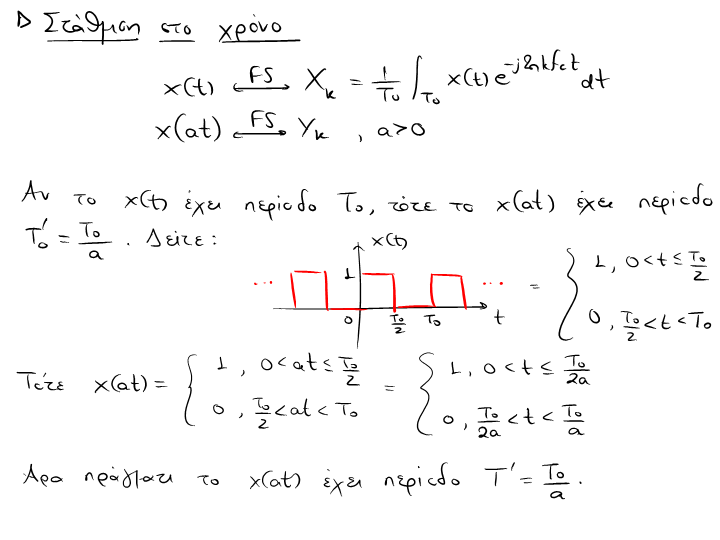 ▷ Στάθμιση στο χρόνο
x(t) ⟷^{FS} X_k = \frac{1}{T_0} ∫_{T_0} x(t) e^{-j2πkf_0t} dt
x(at) ⟷^{FS} Y_k , a>0
Αν το x(t) έχει περίοδο T_0, τότε το x(at) έχει περίοδο
T_0' = \frac{T_0}{a} . Δείτε:
x(t)
1
... ...
0 \frac{T_0}{2} T_0 t
= { 1, 0<t≤\frac{T_0}{2}
0, \frac{T_0}{2}<t<T_0
Τότε x(at) = { 1, 0<at≤\frac{T_0}{2} = { 1, 0<t≤\frac{T_0}{2a}
0, \frac{T_0}{2}<at<T_0 0, \frac{T_0}{2a}<t<\frac{T_0}{a}
Άρα πράγματι το x(at) έχει περίοδο T' = \frac{T_0}{a}.